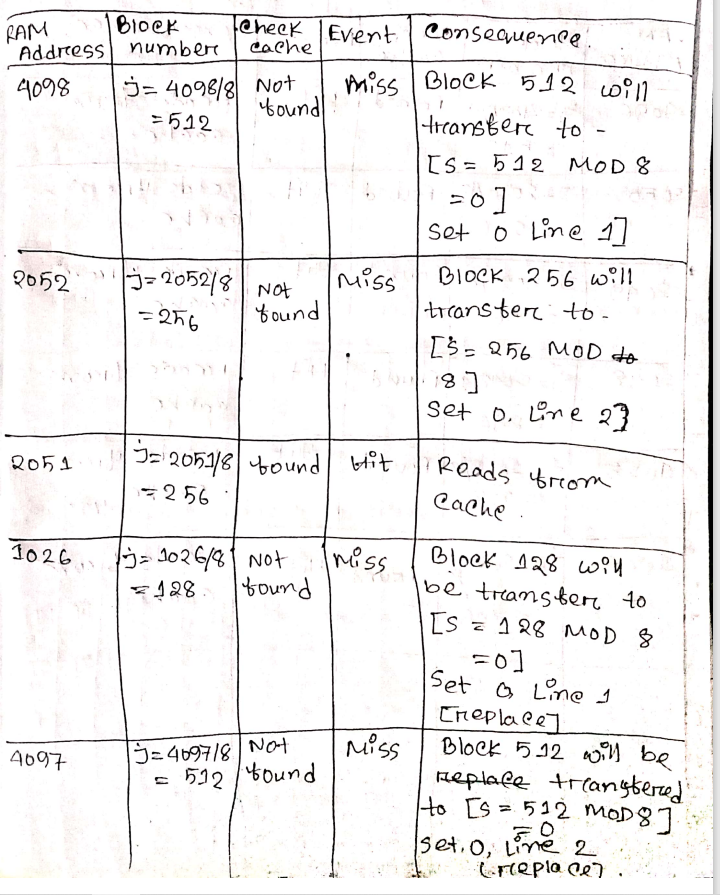 RAM Address | Block number | Check cache | Event | Consequence
4098 | j = 4098/8 = 512 | Not found | Miss | Block 512 will
transfer to -
[S = 512 MOD 8
= 0]
Set 0 Line 1]
2052 | j = 2052/8 = 256 | Not found | Miss | Block 256 will
transfer to -
[S = 256 MOD to
8]
Set 0, Line 2]
2051 | j = 2051/8 = 256 | found | Hit | Reads from
cache.
1026 | j = 1026/8 = 128 | Not found | Miss | Block 128 will
be transfer to
[S = 128 MOD 8
= 0]
Set 0, Line 1
[replace]
4097 | j = 4097/8 = 512 | Not found | Miss | Block 512 will be
replace transfered
to [S = 512 MOD 8]
= 0
Set, 0, Line 2
[replace].